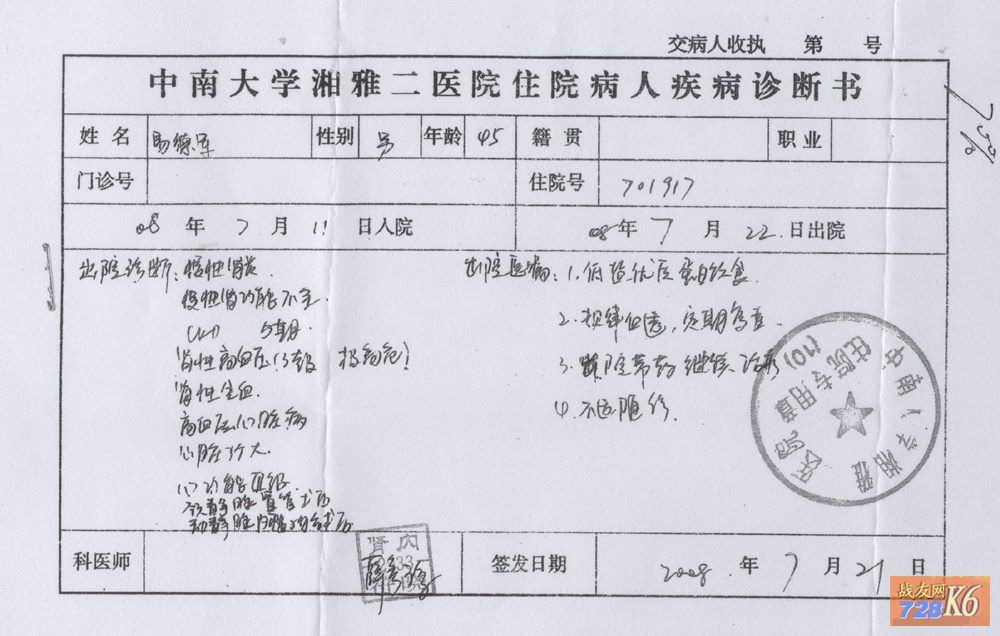 交病人收执 第 号
中南大学湘雅二医院住院病人疾病诊断书
姓名 易德军 性别 男 年龄 45 籍贯 职业
门诊号 住院号 701917
08 年 7 月 11 日入院 08 年 7 月 22 日出院
出院诊断: 慢性肾炎
慢性肾功能不全
5期
肾性高血压(3级 极高危)
肾性贫血
高血压心脏病
心脏扩大
心功能 级
颈静脉置管术后
动静脉内瘘 术后
出院医嘱: 1. 低盐优质蛋白饮食
2. 规律血透,定期复查
3. 出院带药继续治疗
4. 不适随诊.
中南大学湘雅 医院
住院专用章
(10)
科医师 肾内 签发日期 2008 年 7 月 21 日
战友网
728K6